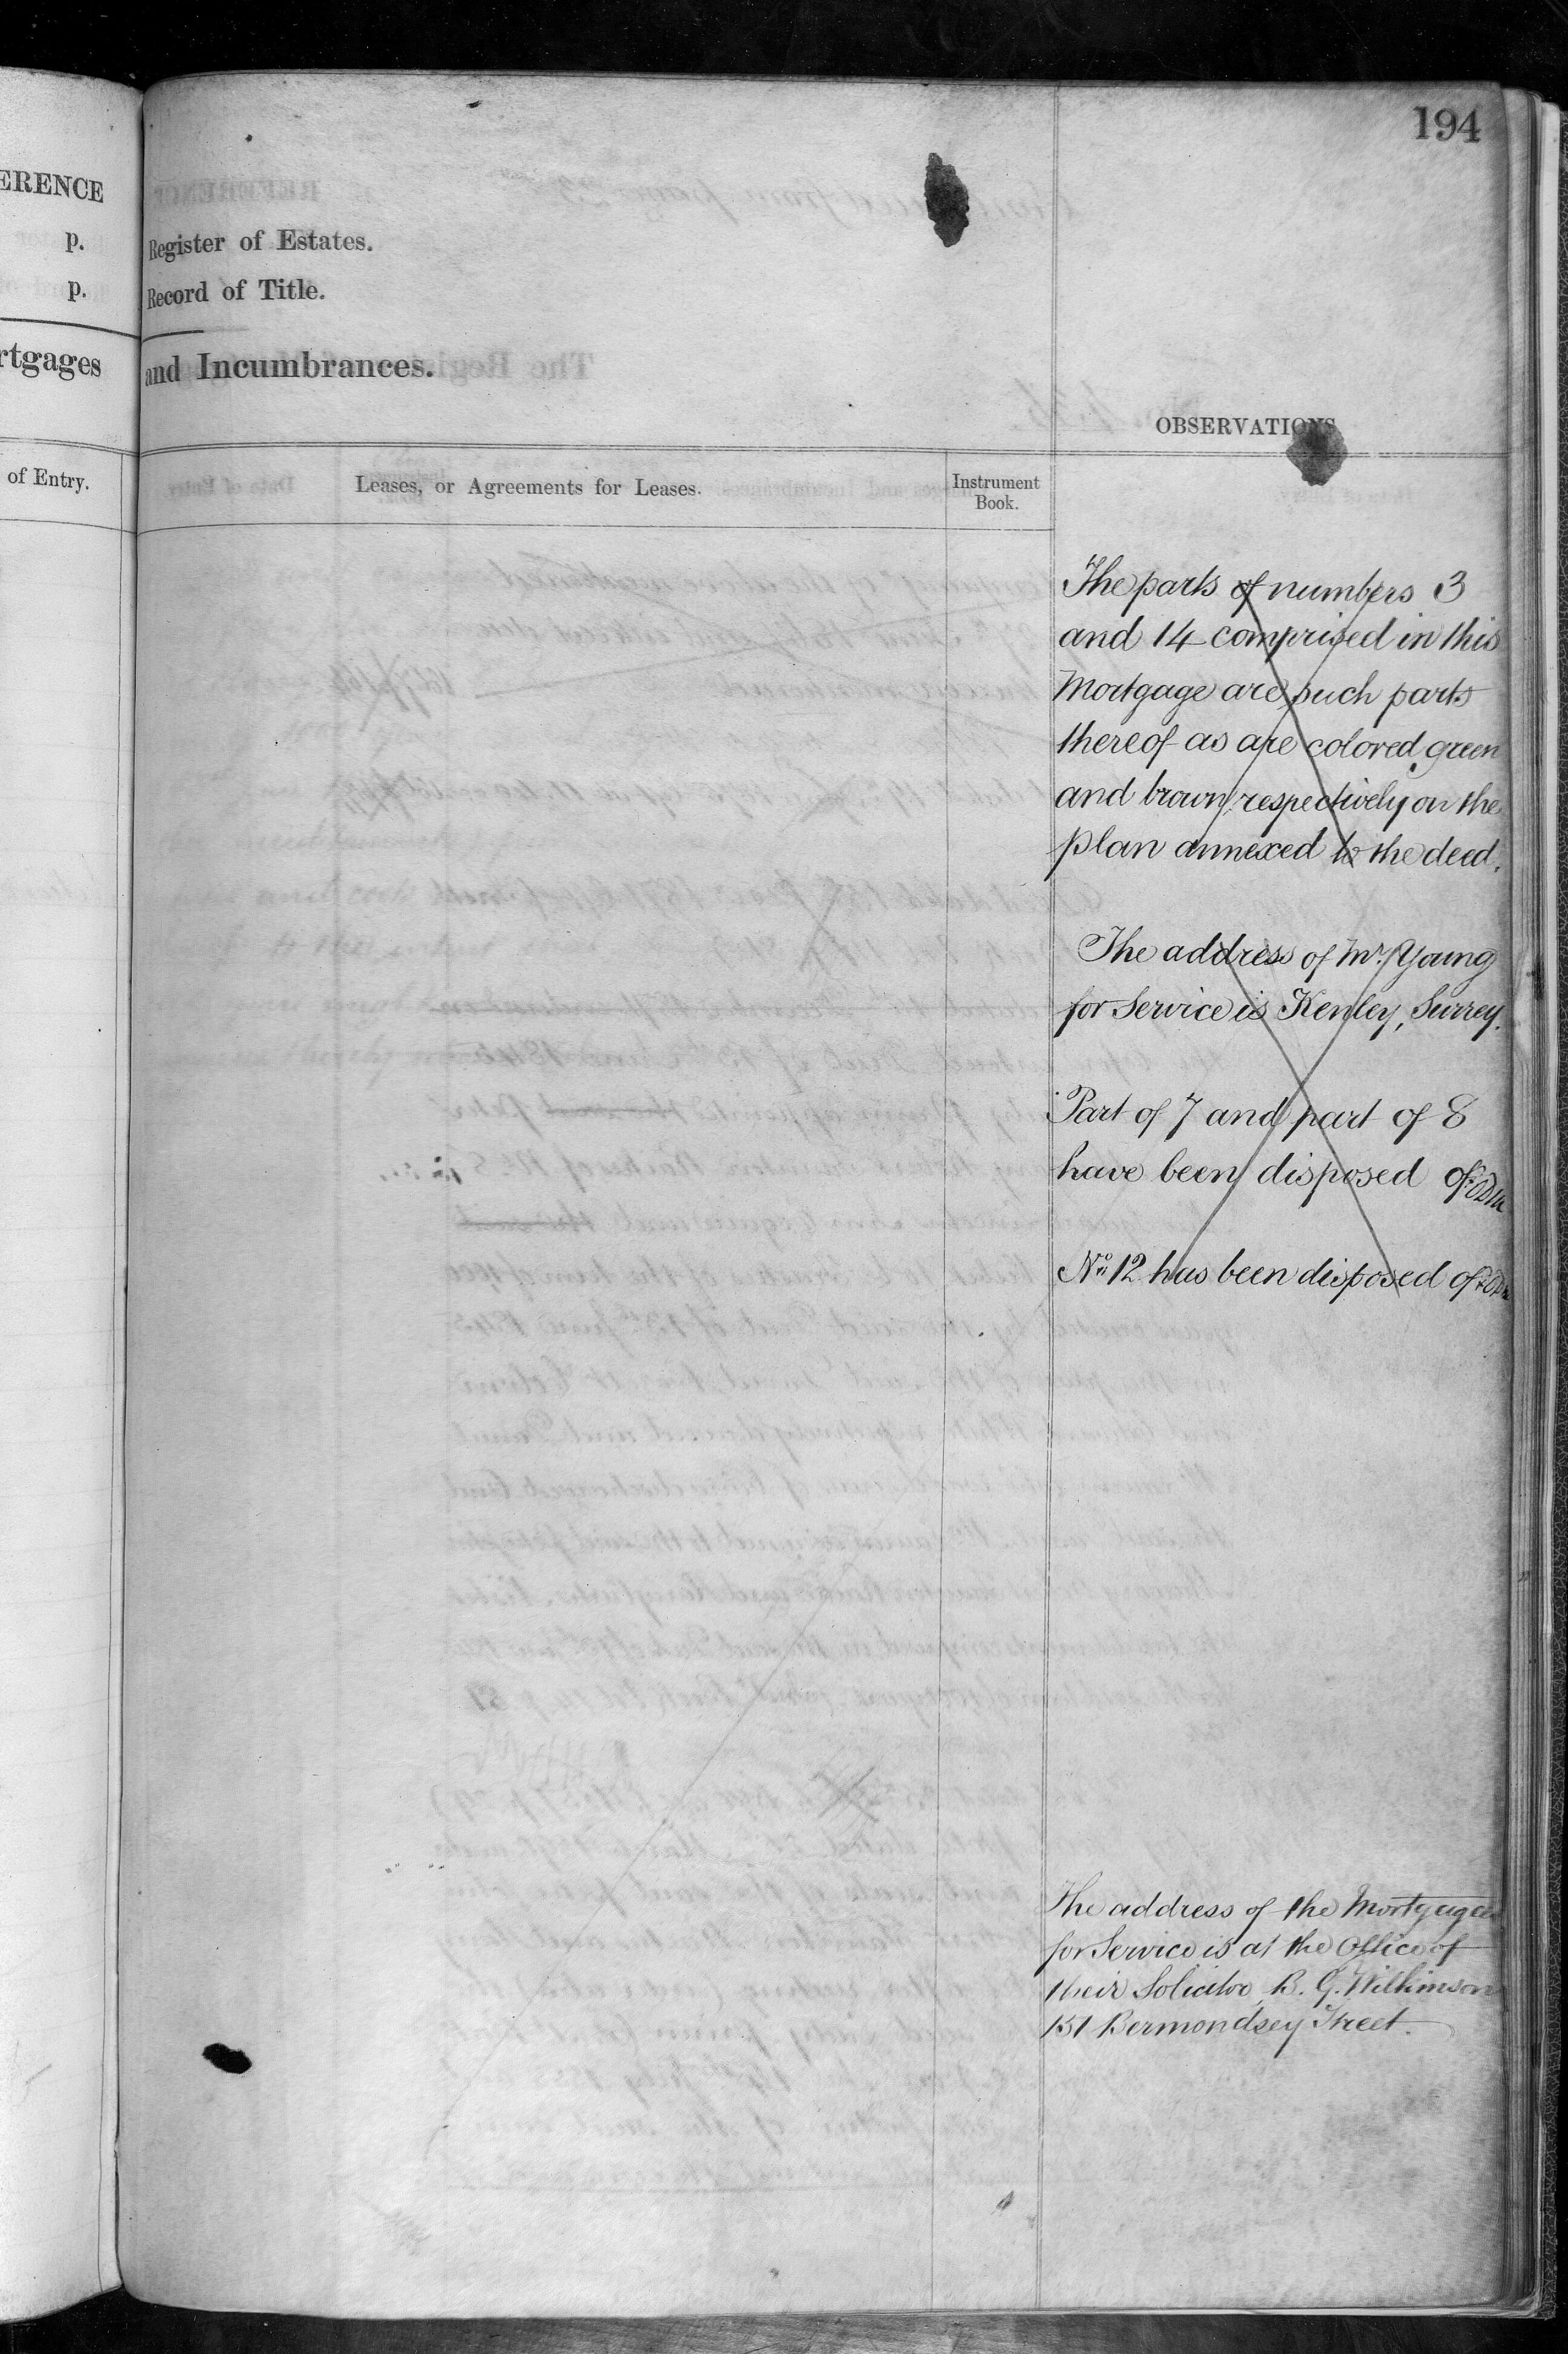 194
ERENCE
p.
p.
rtgages
of Entry.
Register of Estates.
Record of Title.
and Incumbrances.
OBSERVATIONS
Leases, or Agreements for Leases.
Instrument
Book.
The parts of numbers 3
and 14 comprised in this
Mortgage are such parts
thereof as are colored green
and brown respectively on the
plan annexed to the deed.
The address of Mr. Young
for Service is Kenley, Surrey.
Part of 7 and part of 8
have been disposed of
No. 12 has been disposed of
The address of the Mortgagees
for Service is at the Office of
their Solicitor B. G. Wilkinson
151 Bermondsey Street.